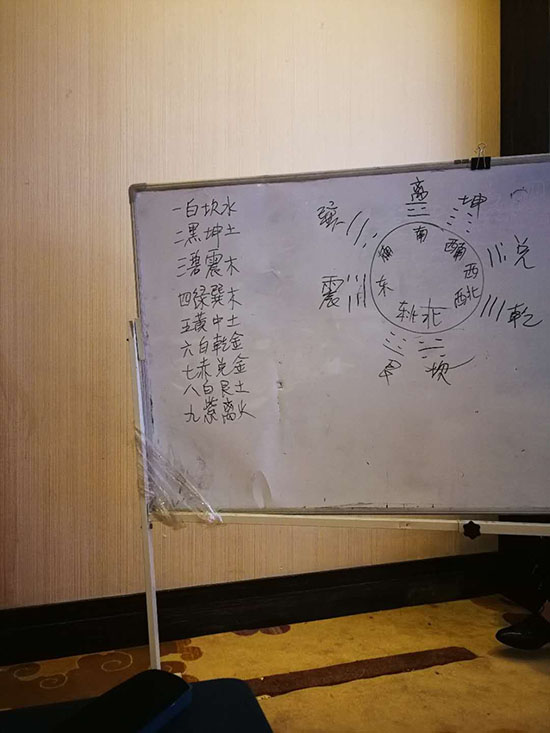 一白坎水
二黑坤土
三碧震木
四绿巽木
五黄中土
六白乾金
七赤兑金
八白艮土
九紫离火
离
坤
南
西南
兑
西
震
东
西北
乾
东北 北
艮 坎